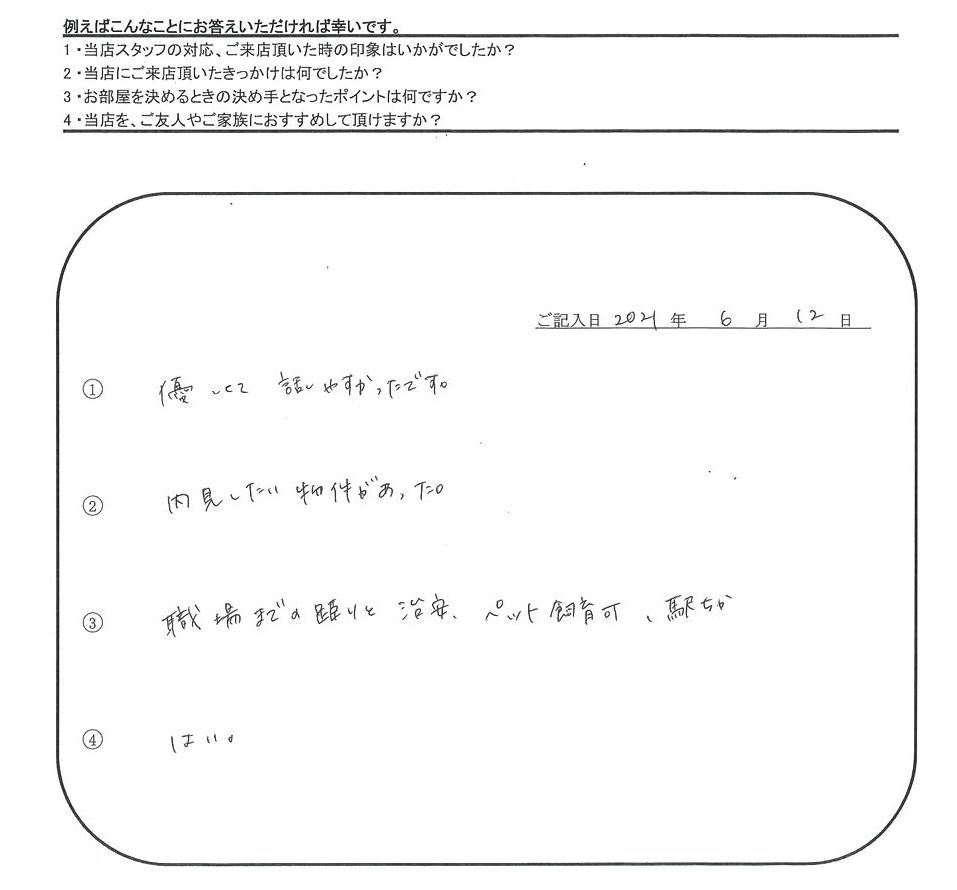 例えばこんなことにお答えいただければ幸いです。
1・当店スタッフの対応、ご来店頂いた時の印象はいかがでしたか？
2・当店にご来店頂いたきっかけは何でしたか？
3・お部屋を決めるときの決め手となったポイントは何ですか？
4・当店を、ご友人やご家族におすすめして頂けますか？
ご記入日 2021 年 6 月 12 日
① 優しくて 話しやすかったです。
② 内見したい物件があった。
③ 職場までの距りと治安、ペット飼育可、駅ちか
④ はい。